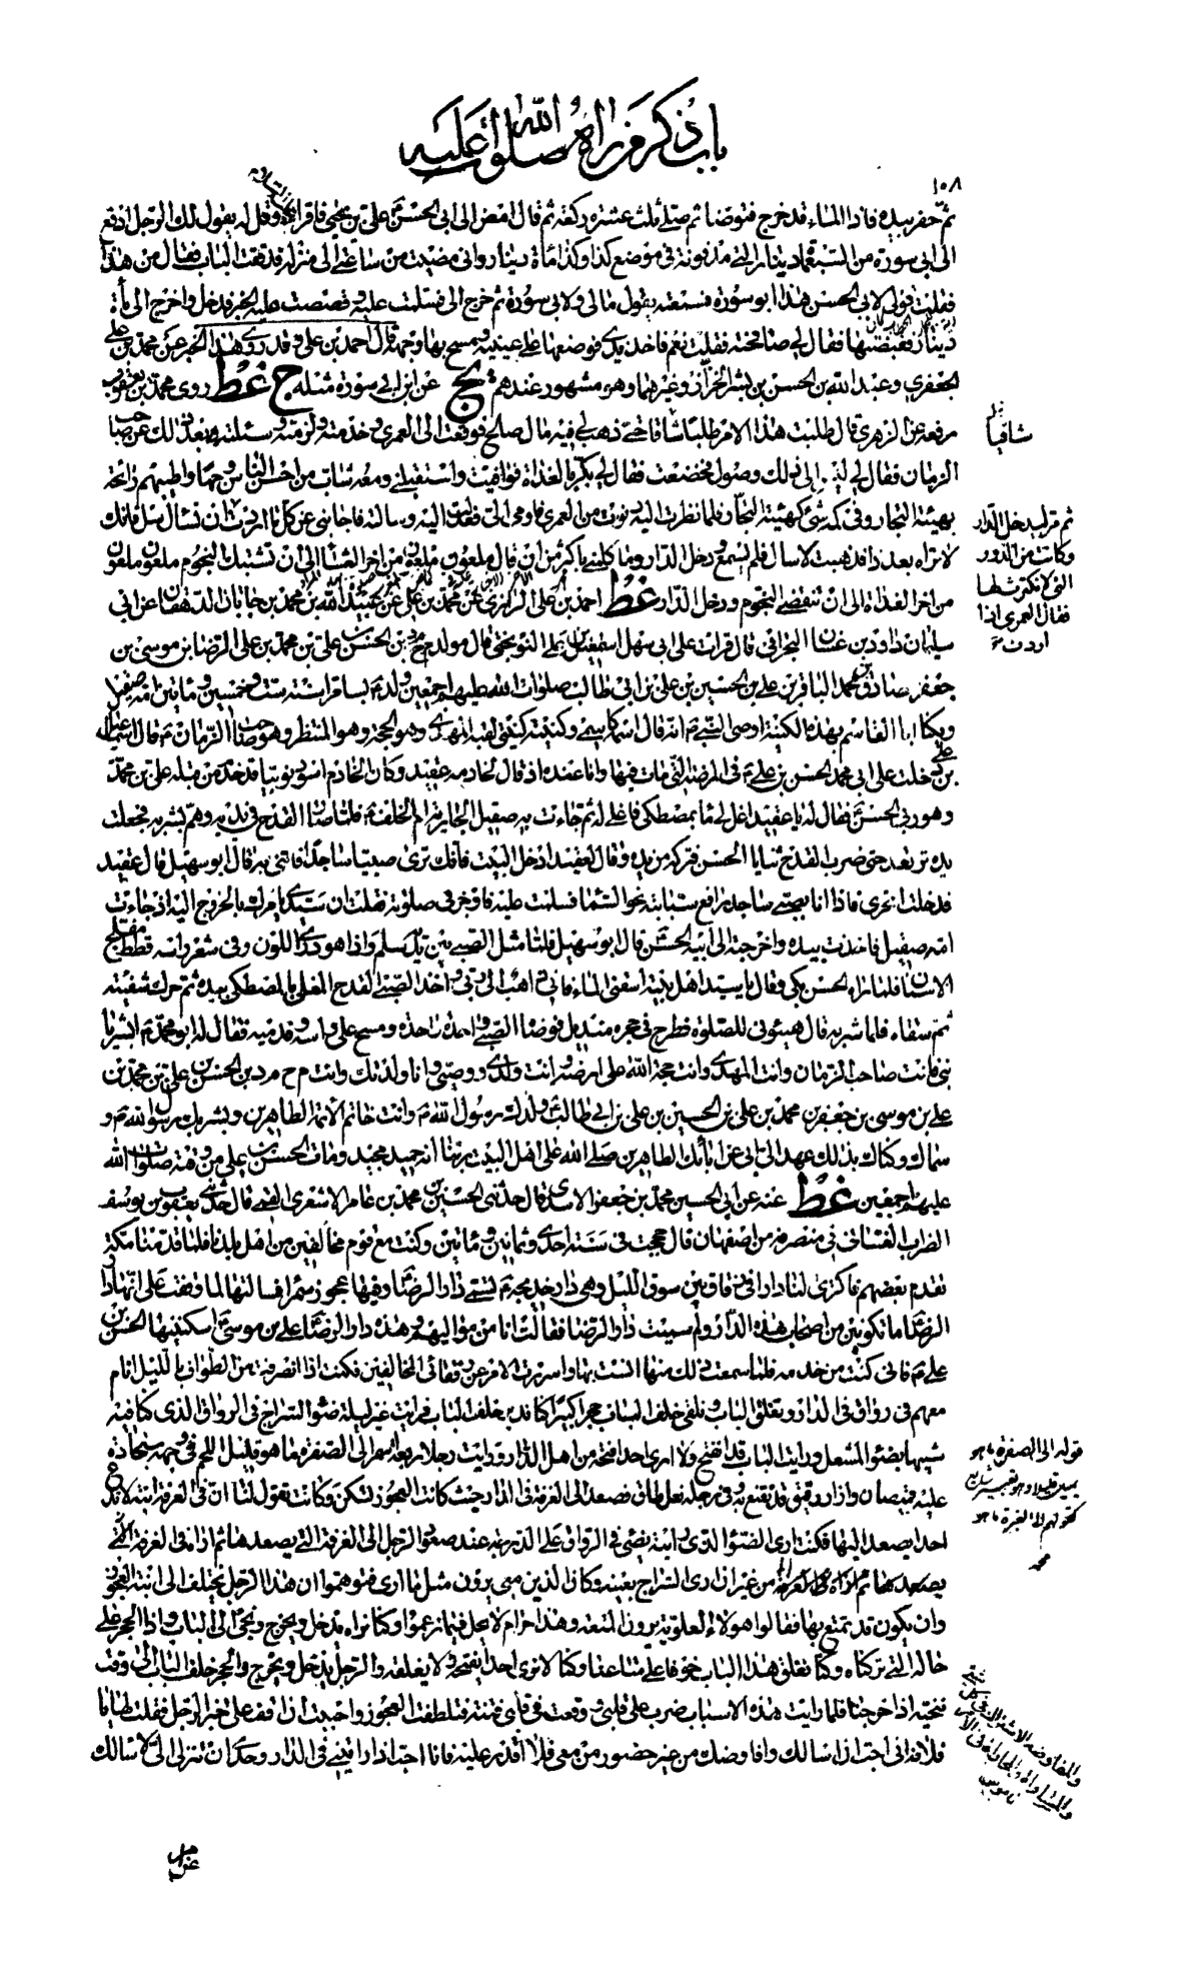 باب ذكر من راه صلوات الله عليه
١٠٨
ثم حفر بيده فاذا الماء قد خرج فتوضا ثم صلى ثلث عشرة ركعة ثم قال امض الى ابى الحسن على بن يحيى فاقرا عليه السلام وقل له يقول لك الرجل ادفع
الى ابى سورة من السبعمائة دينار التى مدفونة فى موضع كذا وكذا مائة دينار وانى مضيت من ساعتى الى منزله فدققت الباب فقال من هذا
فقلت قولى لابى الحسن هذا ابو سورة فسمعته يقول مالى ولابى سورة ثم خرج الى فسلمت عليه وقصصت عليه الخبر فدخل واخرج الى مأة
دينار فقبضتها فقال لى صافحته فقلت نعم فاخذ يدى فوضعها على عينيه ومسح بها وجهه قال احمد بن على وقد روى هذا الخبر عن محمد بن على
الجعفرى وعبد الله بن الحسن بن بشر الخزاز وغيرهما وهو مشهور عندهم يج عن ابن ابى سورة مثله ج غط روى محمد بن يعقوب
مرفعه عن الزهرى قال طلبت هذا الامر طلبا شاقا حتى ذهب لى فيه مال صالح فوقعت الى العمرى وخدمته ولزمته وسئلته بعد ذلك عن صاحب
الزمان فقال لى ليس الى ذلك وصول فخضعت فقال لى بكر بالغداة فوافيت واستقبلنى ومعه شاب من احسن الناس وجها واطيبهم رائحة
بهيئة التجار وفى كمه شئ كهيئة التجار فلما نظرت اليه دنوت من العمرى فاومى الى فعدلت اليه وسالته فاجابنى عن كل ما اردت ثم
لا تراه بعد ذا فذهبت لاسال فلم يسمع ودخل الدار وما كلمنى باكثر من ان قال ملعون ملعون من اخر العشا الى ان تشتبك النجوم ملعون ملعون
من اخر الغداة الى ان تنقضى النجوم ودخل الدار غط احمد بن على الرازى عن محمد بن على عن عبيد الله بن محمد بن جابان الدهقان عن ابى
سليمان داود بن غسان البحرانى قال قرات على ابى سهل اسمعيل بن على النوبختى قال مولد م ح م د بن الحسن بن على بن محمد بن على الرضا بن موسى بن
جعفر صادق بن محمد الباقر بن على بن الحسين بن على بن ابى طالب صلوات الله عليهم اجمعين ولد بسامرا سنة ست وخمسين ومأتين امه صقيل
ويكنا ابا القاسم بهذه الكنية اوصى النبى انه قال اسمه كاسمى وكنيته كنيتى لقبه المهدى وهو الحجة وهو المنتظر وهو صاحب الزمان قال اسمعيل
بن على دخلت على ابى محمد الحسن بن على فى المرضة التى مات فيها وانا عنده اذ قال لخادمه عقيد وكان الخادم اسود نوبيا قد خدم من قبله على بن محمد
وهو ربى الحسن فقال له يا عقيد اغل لى ماء بمصطكى فاغلى له ثم جاءت به صقيل الجارية ام الخلف فلما صار القدح فى يديه وهم بشربه فجعلت
يده ترتعد حتى ضرب القدح ثنايا الحسن فتركه من يده وقال لعقيد ادخل البيت فانك ترى صبيا ساجدا فاتنى به قال ابو سهيل قال عقيد
فدخلت اتحرى فاذا انا بصبى ساجد رافع سبابته نحو السماء فسلمت عليه فاوجز فى صلوته فقلت ان سيدى يامرك بالخروج اليه اذ جاءت
امه صقيل فاخذت بيده واخرجته الى ابيه الحسن قال ابو سهيل فلما مثل الصبى بين يديه سلم واذا هو درى اللون وفى شعر راسه قطط مفلج
الاسنان فلما راه الحسن بكى وقال يا سيد اهل بيته اسقنى الماء فانى ذاهب الى ربى واخذ الصبى القدح المغلى بالمصطكى بيده ثم حرك شفتيه
ثم سقاه فلما شربه قال هيئونى للصلوة فطرح فى حجره منديل فوضاه الصبى واحدة واحدة ومسح على راسه وقدميه فقال له ابو محمد ابشر يا
بنى فانت صاحب الزمان وانت المهدى وانت حجة الله على ارضه وانت ولدى ووصيى وانا ولدتك وانت م ح م د بن الحسن بن على بن محمد بن
على بن موسى بن جعفر بن محمد بن على بن الحسين بن على بن ابى طالب ولدك رسول الله وانت خاتم الائمة الطاهرين وبشر بك رسول الله و
سماك وكناك بذلك عهد الى ابى عن ابائك الطاهرين صلى الله على اهل البيت ربنا انه حميد مجيد ومات الحسن بن على من وقته صلوات الله
عليهم اجمعين غط عنه عن ابى الحسين محمد بن جعفر الاسدى قال حدثنى الحسين بن محمد بن عامر الاشعرى القمى قال حدثنى يعقوب بن يوسف
الضراب الغسانى فى منصرفه من اصفهان قال حججت فى سنة احدى وثمانين ومأتين وكنت مع قوم مخالفين من اهل بلدنا فلما قدمنا مكة
تقدم بعضهم فاكترى لنا دارا فى زقاق بين سوق الليل وهى دار خديجة تسمى دار الرضا وفيها عجوز سمراء فسالتها لما وقفت على انها دار
الرضا ما تكونين من اصحاب هذه الدار ولم سميت دار الرضا فقالت انا من مواليهم وهذه دار الرضا على بن موسى اسكننيها الحسن بن
على فانى كنت من خدمه فلما سمعت ذلك منها انست بها واسررت الامر عن رفقائى المخالفين فكنت اذا انصرفت من الطواف بالليل انام
معهم فى رواق فى الدار ونغلق الباب ونلقى خلف الباب حجرا كبيرا كنا ندير خلف الباب فرايت غير ليلة ضوء السراج فى الرواق الذى كنا فيه
شبيها بضوء المشعل ورايت الباب قد انفتح ولا ارى احدا فتحه من اهل الدار ورايت رجلا ربعة اسمر الى الصفرة ما هو قليل اللحم فى وجهه سجادة
عليه قميصان وازار رقيق قد تقنع به وفى رجله نعل طاق فصعد الى الغرفة فى الدار حيث كانت العجوز تسكن وكانت تقول لنا ان فى الغرفة ابنته لا تدع
احدا يصعد اليها فكنت ارى الضوء الذى رايته يضئ فى الرواق على الدرجة عند صعود الرجل الى الغرفة التى يصعدها ثم اراه فى الغرفة التى
يصعدها من غير ان ارى السراج بعينه وكان الذين معى يرون مثل ما ارى فتوهموا ان هذا الرجل يختلف الى ابنة العجوز
وان يكون قد تمتع بها فقالوا هولاء العلوية يرون المتعة وهذا حرام لا يحل فيما زعموا وكنا نراه يدخل ويخرج ونجئ الى الباب واذا الحجر على
حاله التى تركناه وكنا نغلق هذا الباب خوفا على متاعنا وكنا لا نرى احدا يفتحه ولا يغلقه والرجل يدخل ويخرج والحجر خلف الباب الى وقت
ننحيه اذا خرجنا فلما رايت هذه الاسباب ضرب على قلبى ووقعت فى قلبى فتنة فتلطفت العجوز واحببت ان اقف على خبر الرجل فقلت لها يا
فلانة انى احب ان اسالك وافاوضك من غير حضور من معى فلا اقدر عليه فانا احب اذا رايتنى فى الدار وحدى ان تنزلى الى لاسالك
عن امر
شافيا
ثم مر ليدخل الدار
وكانت من الدور
التى لا نكترث لها
فقال العمرى اذا
اردت
قوله الى الصفرة ما هو